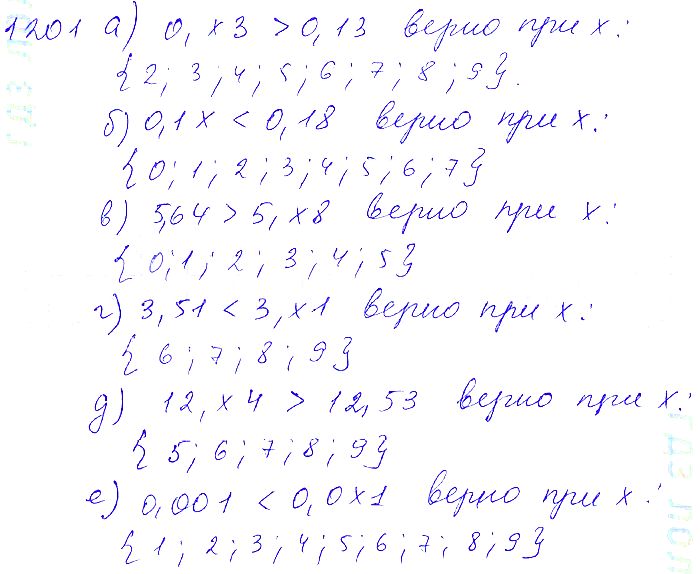 1201 а) 0, x 3 > 0,13 верно при x:
{2; 3; 4; 5; 6; 7; 8; 9}.
б) 0,1x < 0,18 верно при x:
{0; 1; 2; 3; 4; 5; 6; 7}
в) 5,64 > 5, x8 верно при x:
{0; 1; 2; 3; 4; 5}
г) 3,51 < 3, x1 верно при x:
{6; 7; 8; 9}
д) 12, x 4 > 12,53 верно при x:
{5; 6; 7; 8; 9}
е) 0,001 < 0,0x1 верно при x:
{1; 2; 3; 4; 5; 6; 7; 8; 9}